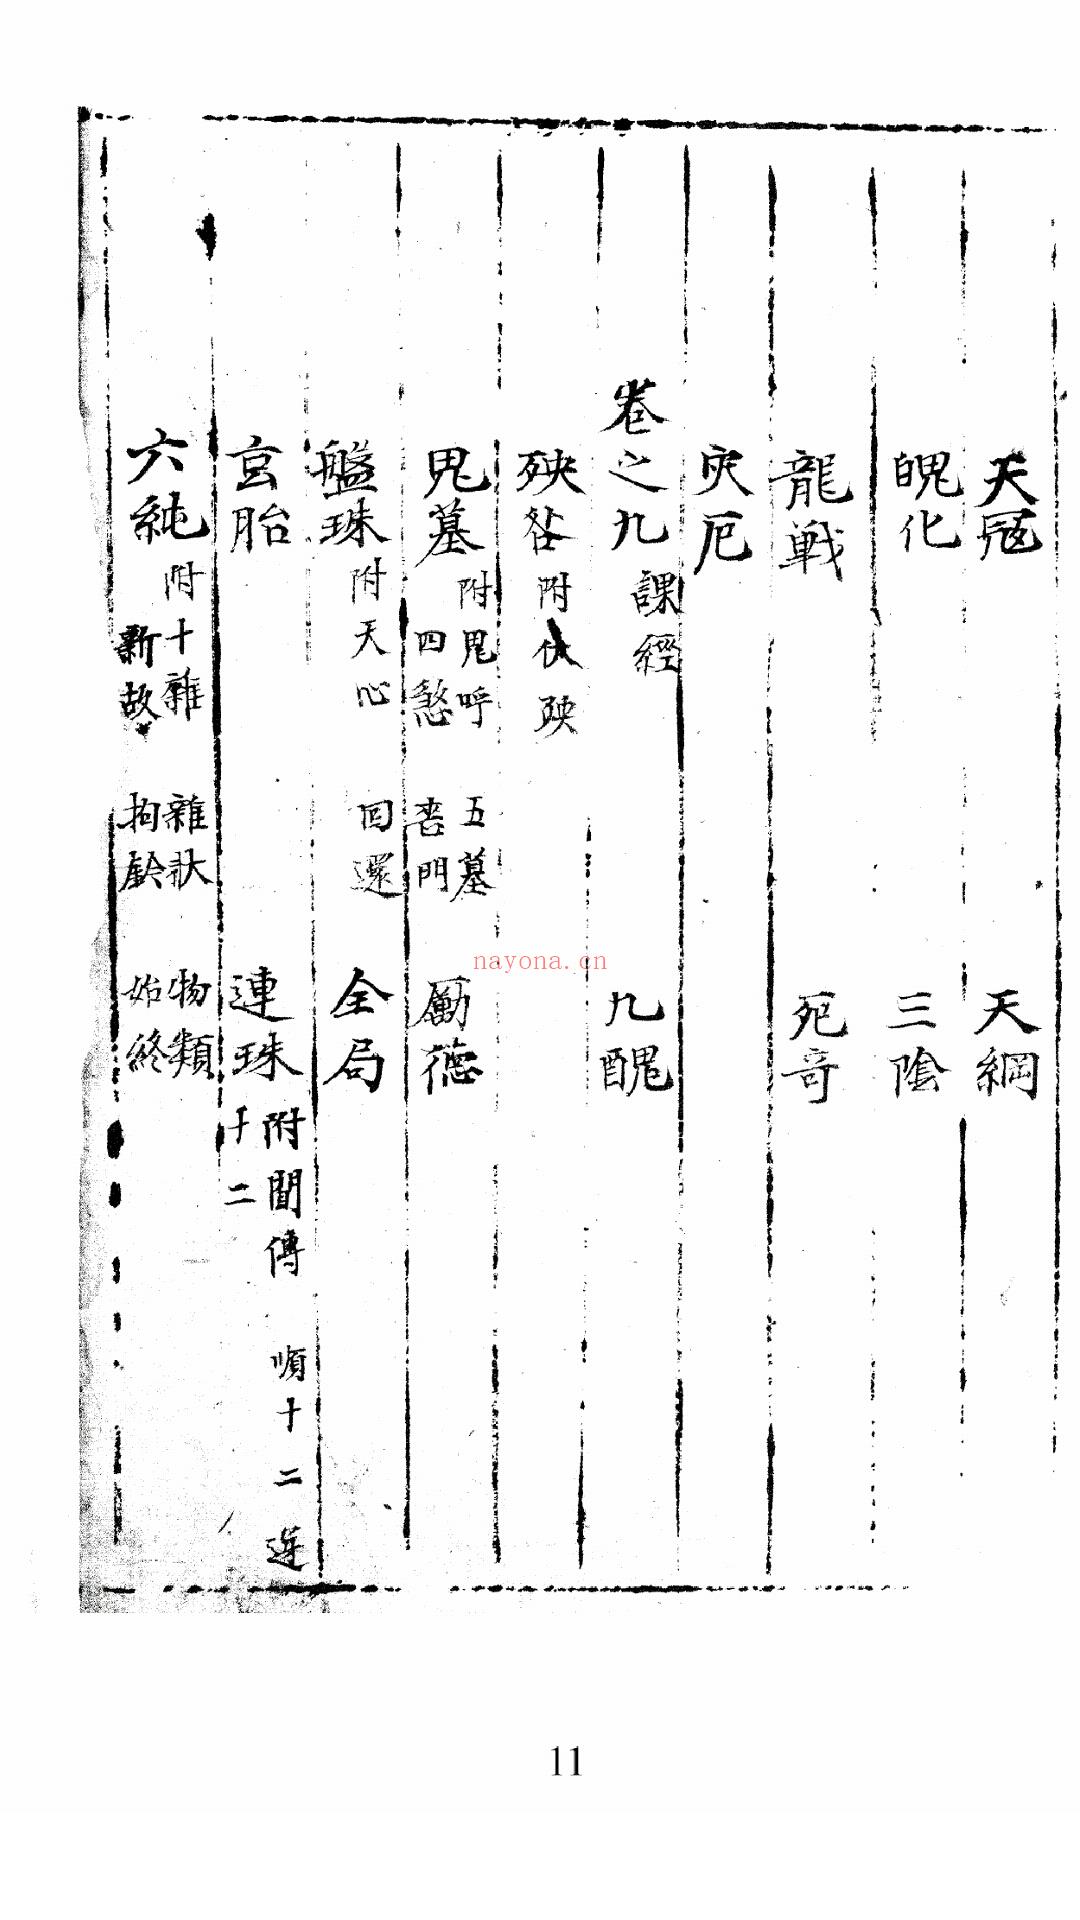 天冦 天綱
魄化 三陰
龍戰 死奇
灾厄
卷之九 課經 九醜
殃咎 附伏殃
鬼墓 附鬼呼 四煞 五墓 䘮門 勵德
盤珠 附天心 回還 全局
玄胎 連珠 附間傳 順十二 逆十二
六純 附十雜 新故 雜狀 拘鈐 物類 始終
nayona.cn
11